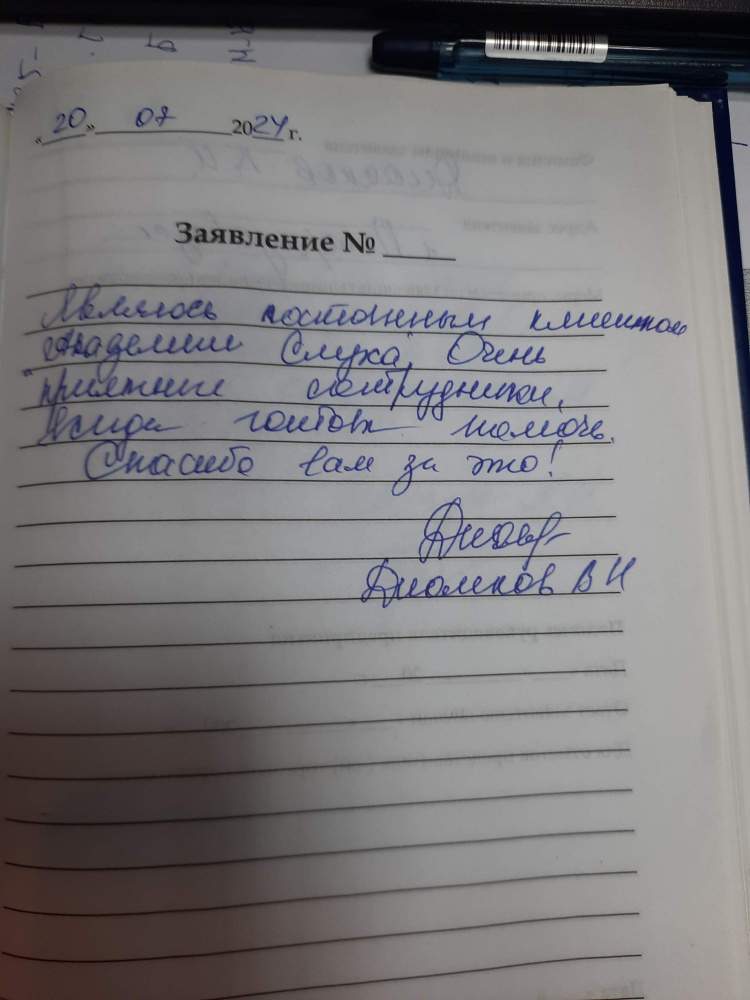 «20» 07 2024 г.
Заявление №
Являюсь постоянным клиентом
"Академии Слуха". Очень
приятные сотрудники,
всегда готовы помочь.
Спасибо вам за это!
В Н